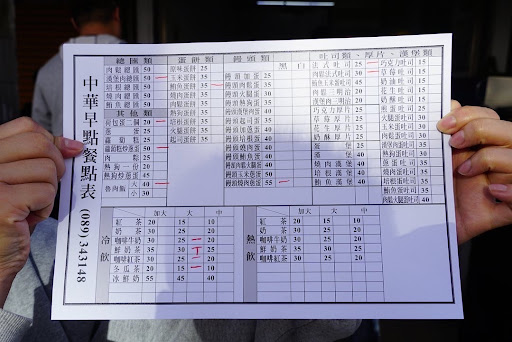 中華早點餐點表 (089) 343148
總匯類
肉鬆總匯 50
漢堡肉總匯 50
培根總匯 50
燒肉總匯 50
火腿總匯 50
鮪魚總匯 50
其他類
荷包蛋二個 20
蔥蛋 25
蘿蔔糕 25
蘿蔔糕炒蛋 35
肉鬆 25
熱狗一份 20
熱狗炒蛋 35
魯肉飯 大 40
小 30
蛋餅類
原味蛋餅 25
玉米蛋餅 35
肉鬆蛋餅 35
鮪魚蛋餅 35
熱狗蛋餅 35
培根蛋餅 35
火腿蛋餅 35
燒肉蛋餅 35
起司蛋餅 35
饅頭類 黑 白
饅頭加蛋 25
饅頭肉鬆蛋 35
饅頭起司蛋 35
饅頭漢堡肉蛋 35
饅頭熱狗蛋 35
饅頭培根蛋 35
饅頭火腿蛋 35
饅頭燒肉蛋 40
饅頭鮪魚蛋 40
饅頭燒肉蛋 55
吐司類、厚片、漢堡類
法式吐司 25
肉鬆法式吐司 30
鮪魚玉米蛋吐司 45
肉鬆一明治 20
漢堡肉一明治 20
巧克力厚片 25
草莓厚片 25
花生厚片 25
奶酥厚片 25
蛋漢堡 25
漢堡 40
燒肉漢堡 40
培根漢堡 40
鮪魚漢堡 40
巧克力吐司 15
草莓吐司 15
奶油吐司 15
花生吐司 15
奶酥吐司 15
煎蛋吐司 25
火腿蛋吐司 30
玉米蛋吐司 30
肉鬆蛋吐司 30
熱狗蛋吐司 30
起司蛋吐司 30
燒肉蛋吐司 35
培根蛋吐司 35
鮪魚蛋吐司 35
漢堡肉蛋吐司 40
冷飲
加大 大 中
紅茶 20 15 10
奶茶 30 25 20
咖啡牛奶 30 25 20
鮮奶茶 35 30 25
咖啡紅茶 30 25 20
冬瓜茶 20 15 10
冰鮮奶 55 45 40
熱飲
加大 大 中
紅茶 20 15 10
奶茶 30 25 20
咖啡牛奶 30 25 20
鮮奶茶 35 30 25
咖啡紅茶 30 25 20